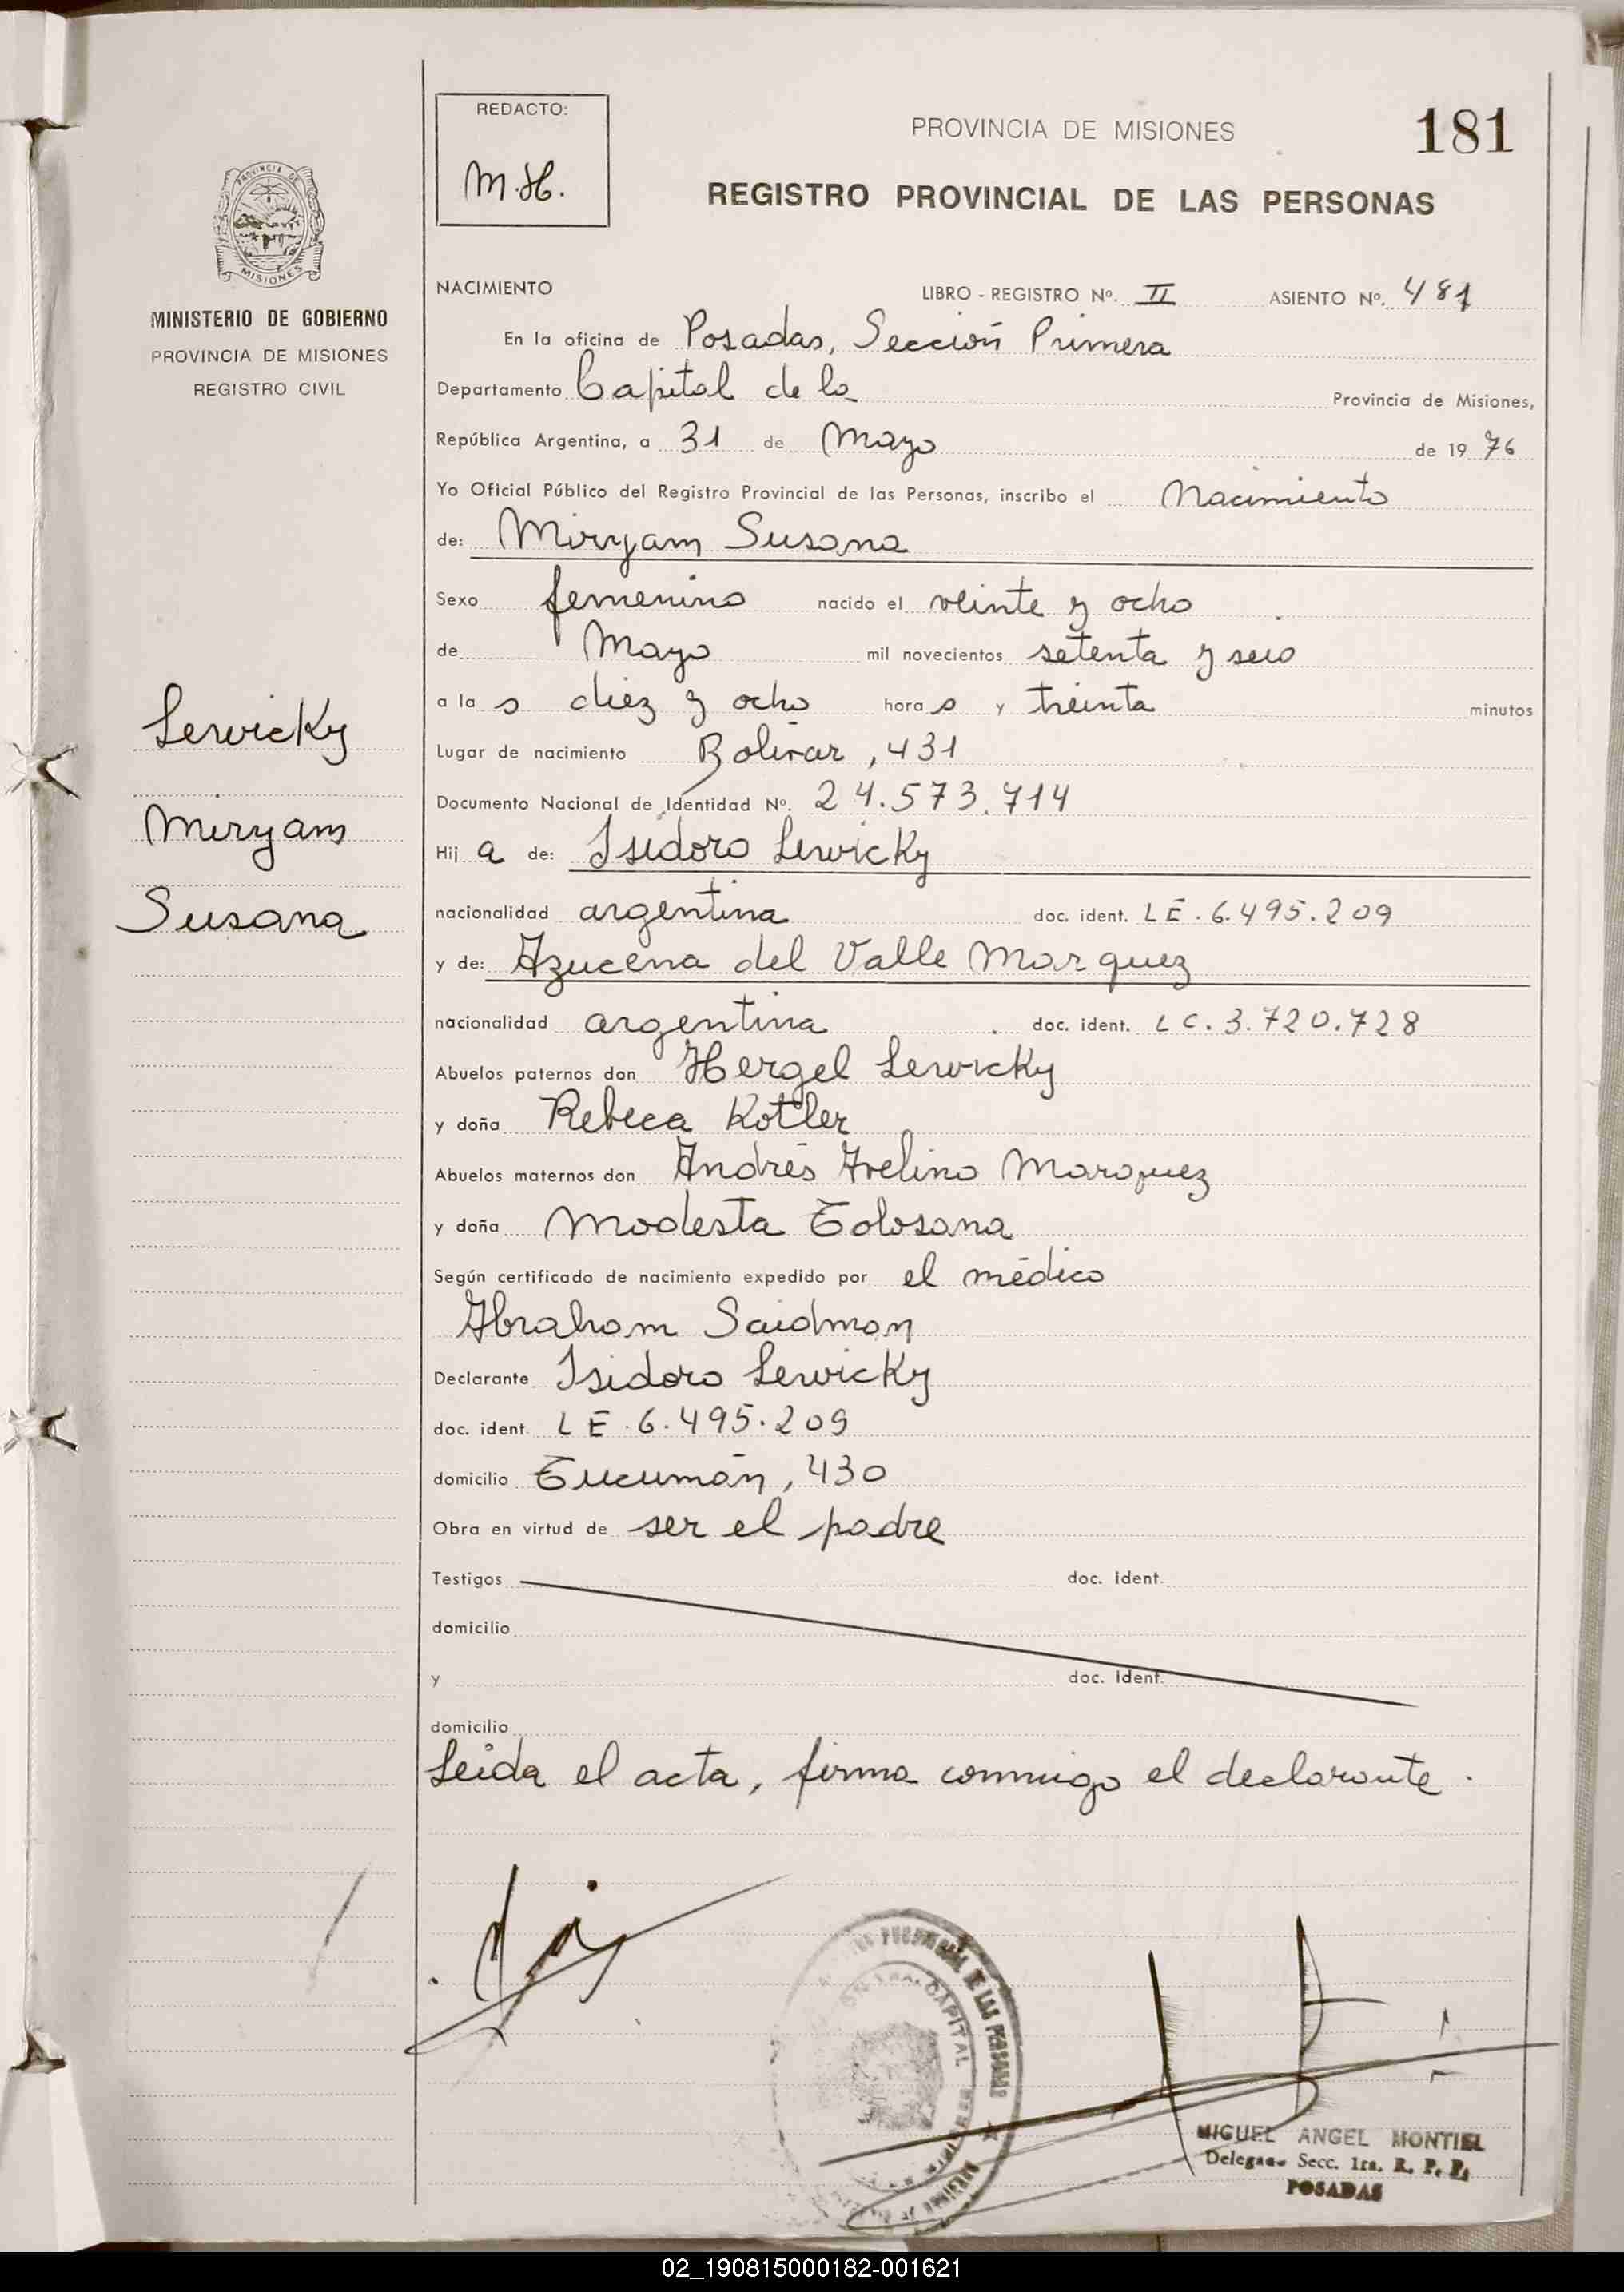 REDACTO:
M.H.
PROVINCIA DE MISIONES
181
REGISTRO PROVINCIAL DE LAS PERSONAS
PROVINCIA DE
MISIONES
MINISTERIO DE GOBIERNO
PROVINCIA DE MISIONES
REGISTRO CIVIL
NACIMIENTO LIBRO - REGISTRO Nº. II ASIENTO Nº. 481
En la oficina de Posadas, Sección Primera
Departamento Capital de la Provincia de Misiones,
República Argentina, a 31 de Mayo de 1976
Yo Oficial Público del Registro Provincial de las Personas, inscribo el Nacimiento
de: Miryam Susana
Sexo femenino nacido el veinte y ocho
de Mayo mil novecientos setenta y seis
a las diez y ocho horas y treinta minutos
Lugar de nacimiento Bolivar, 431
Documento Nacional de Identidad Nº. 24.573.714
Hija de: Isidoro Lewicky
nacionalidad argentina doc. ident. LE. 6.495.209
y de: Azucena del Valle Marquez
nacionalidad argentina doc. ident. LC. 3.720.728
Abuelos paternos don Hergel Lewicky
y doña Rebeca Kotler
Abuelos maternos don Andrés Avelino Marquez
y doña Modesta Tolosana
Según certificado de nacimiento expedido por el médico
Abraham Saidman
Declarante Isidoro Lewicky
doc. ident. LE. 6.495.209
domicilio Tucumán, 430
Obra en virtud de ser el padre
Testigos doc. ident.
domicilio
y doc. ident.
domicilio
Leída el acta, firma conmigo el declarante.
Lewicky
Miryam
Susana
DE LAS PERSONAS
CAPITAL
MIGUEL ANGEL MONTIEL
Secc. 1ra. R. P. P.
POSADAS
02_190815000182-001621